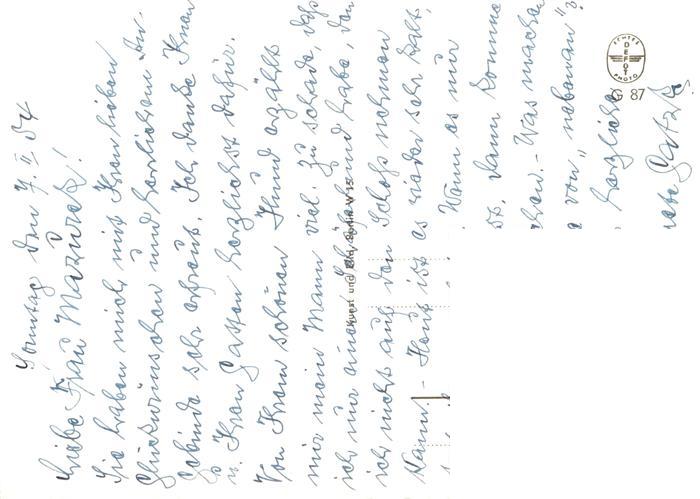 Sonntag den 7. II. 54
Liebe Frau Mazurek!
Sie haben mich mit Ihren lieben
Glückwünschen und herrlichem
Gebinde sehr erfreut. Ich danke Ihnen
u. Ihrem Gatten herzlichst dafür.
Von Ihrem schönen Hund erzählt
mir mein Mann viel. Zu schade, daß
ich nur einen habe, den
ich nicht auf den Schoß nehmen
kann. - Heut ist es wieder sehr kalt,
Wenn es mir
dann komme
Was machen
von "nebenan"?
Herzliche
Kunst und Bild, Berlin W 15
ECHTES
DEFOT
PHOTO
G 87